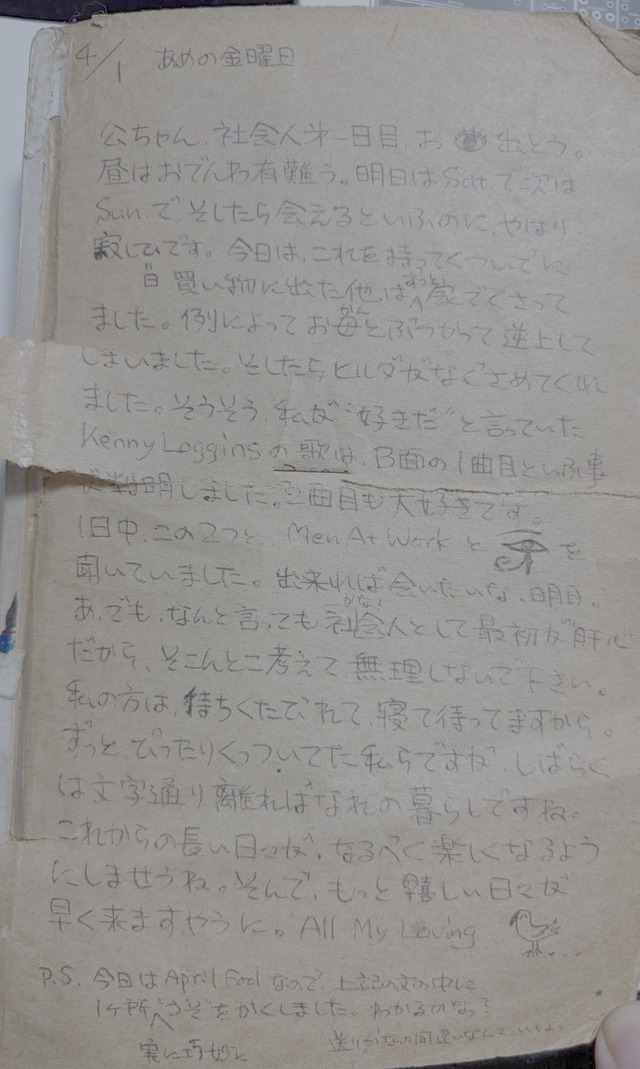 4/1 あめの金曜日
公ちゃん、社会人第一日目、お 出とう。
昼はおでんわ有難う。明日はSat.で次は
Sun.で、そしたら会えるといふのに、やはり
寂しひです。今日は、これを持ってくついでに
買い物に出た他はずっと家でくさって
ました。例によってお母とぶつかって逆上して
しまいました。そしたらヒルダがなぐさめてくれ
ました。そうそう、私が"好きだ"と言っていた
Kenny Logginsの歌は、B面の1曲目といふ事
が判明しました。2曲目も大好きです。
1日中、この2つと、Men At Workと を
聞いていました。出来れば会いたいな、明日。
あ、でも、なんと言っても社会人として最初が肝心
だから、そこんとこ考えて、無理しないで下さい。
私の方は、待ちくたびれて、寝て待ってますから。
ずっと、ぴったりくっついてた私らですが、しばらく
は文字通り離ればなれの暮らしですね。
これからの長い日々が、なるべく楽しくなるよう
にしませうね。そんで、もっと嬉しい日々が
早く来ますやうに。All My Loving
P.S. 今日はApril Foolなので、上記の文の中に
1ヶ所、実に巧妙にうそをかくしました。わかるかなっ?
送りがなの間違いなんて、いやよっ